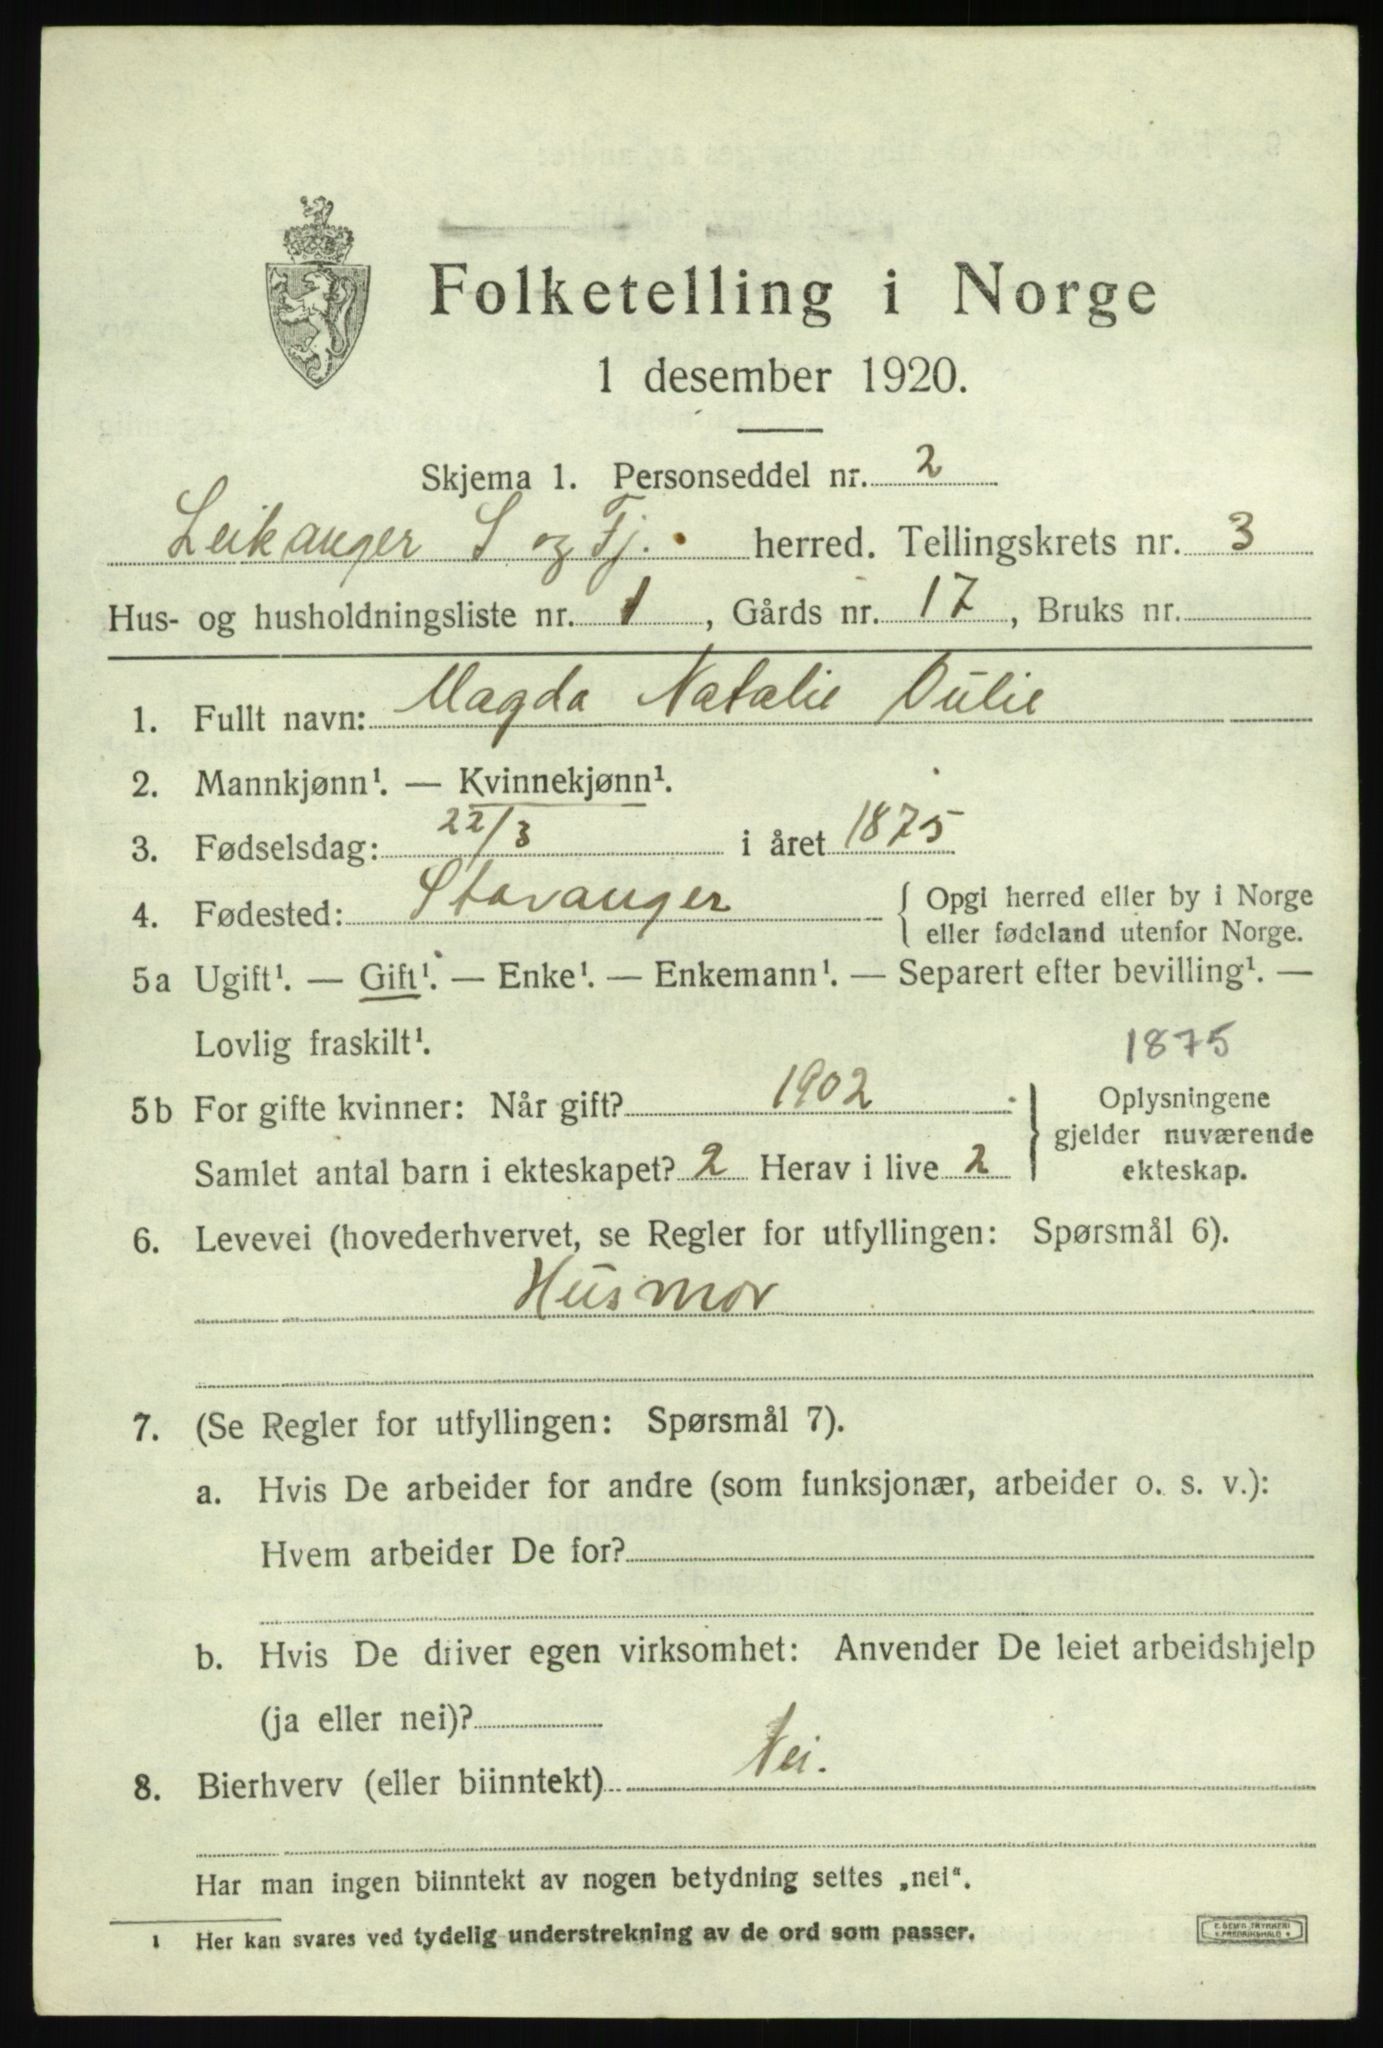 Folketelling i Norge
1 desember 1920.
Skjema 1. Personseddel nr. 2
Leikanger S og Fj. herred. Tellingskrets nr. 3
Hus- og husholdningsliste nr. 1, Gårds nr. 17, Bruks nr.
1. Fullt navn: Magda Natalie Dulie
2. Mannkjønn¹. — Kvinnekjønn¹.
3. Fødselsdag: 22/3 i året 1875
4. Fødested: Stavanger { Opgi herred eller by i Norge
eller fødeland utenfor Norge.
5a Ugift¹. — Gift¹. — Enke¹. — Enkemann¹. — Separert efter bevilling¹. —
Lovlig fraskilt¹.
1875
5b For gifte kvinner: Når gift? 1902
Samlet antal barn i ekteskapet? 2 Herav i live 2
Oplysningene
gjelder nuværende
ekteskap.
6. Levevei (hovederhvervet, se Regler for utfyllingen: Spørsmål 6).
Husmor
7. (Se Regler for utfyllingen: Spørsmål 7).
a. Hvis De arbeider for andre (som funksjonær, arbeider o. s. v.):
Hvem arbeider De for?
b. Hvis De driver egen virksomhet: Anvender De leiet arbeidshjelp
(ja eller nei)?
8. Bierhverv (eller biinntekt) Nei.
Har man ingen biinntekt av nogen betydning settes „nei“.
¹ Her kan svares ved tydelig understrekning av de ord som passer.